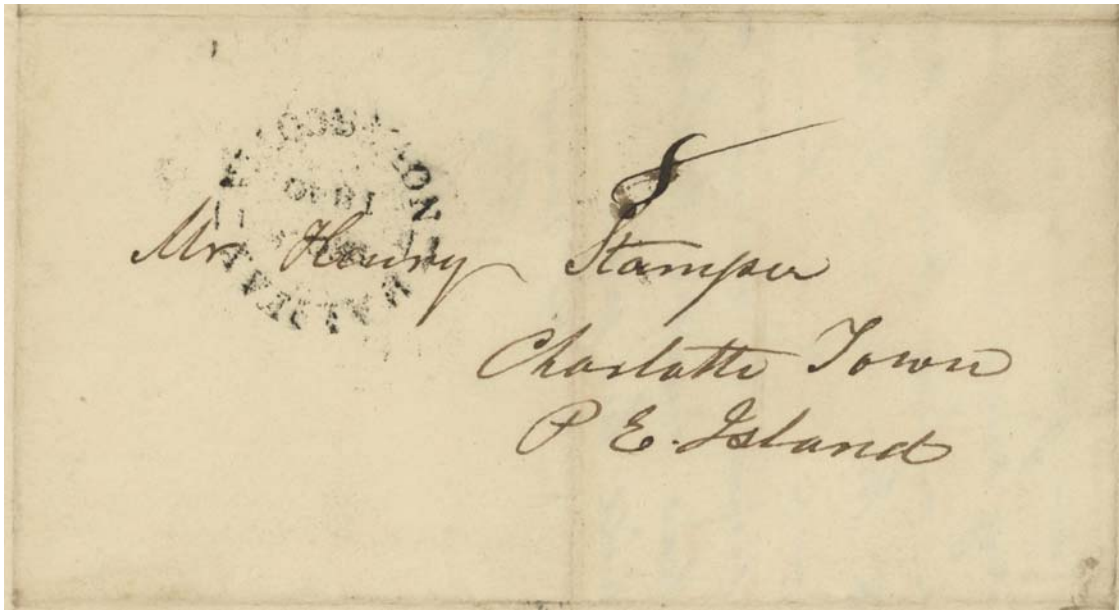 8
Mr. Henry Stamper
Charlotte Town
P E. Island